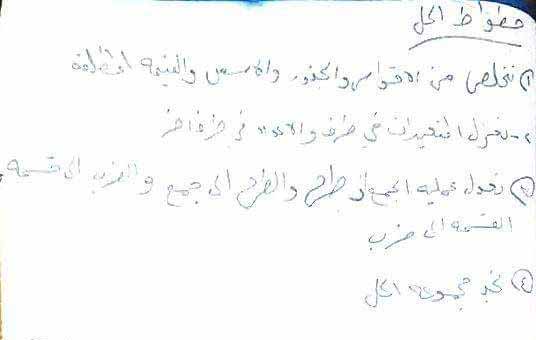 خطوات الحل
① نتخلص من الاقواس والجذور والاسس والقيمه المطلقة
2- نعزل المتغيرات في طرف والاعداد في طرف اخر
③ نحول عمليه الجمع الى طرح والطرح الى جمع والضرب الى قسمه
القسمه الى ضرب
④ نجد مجموعه الحل